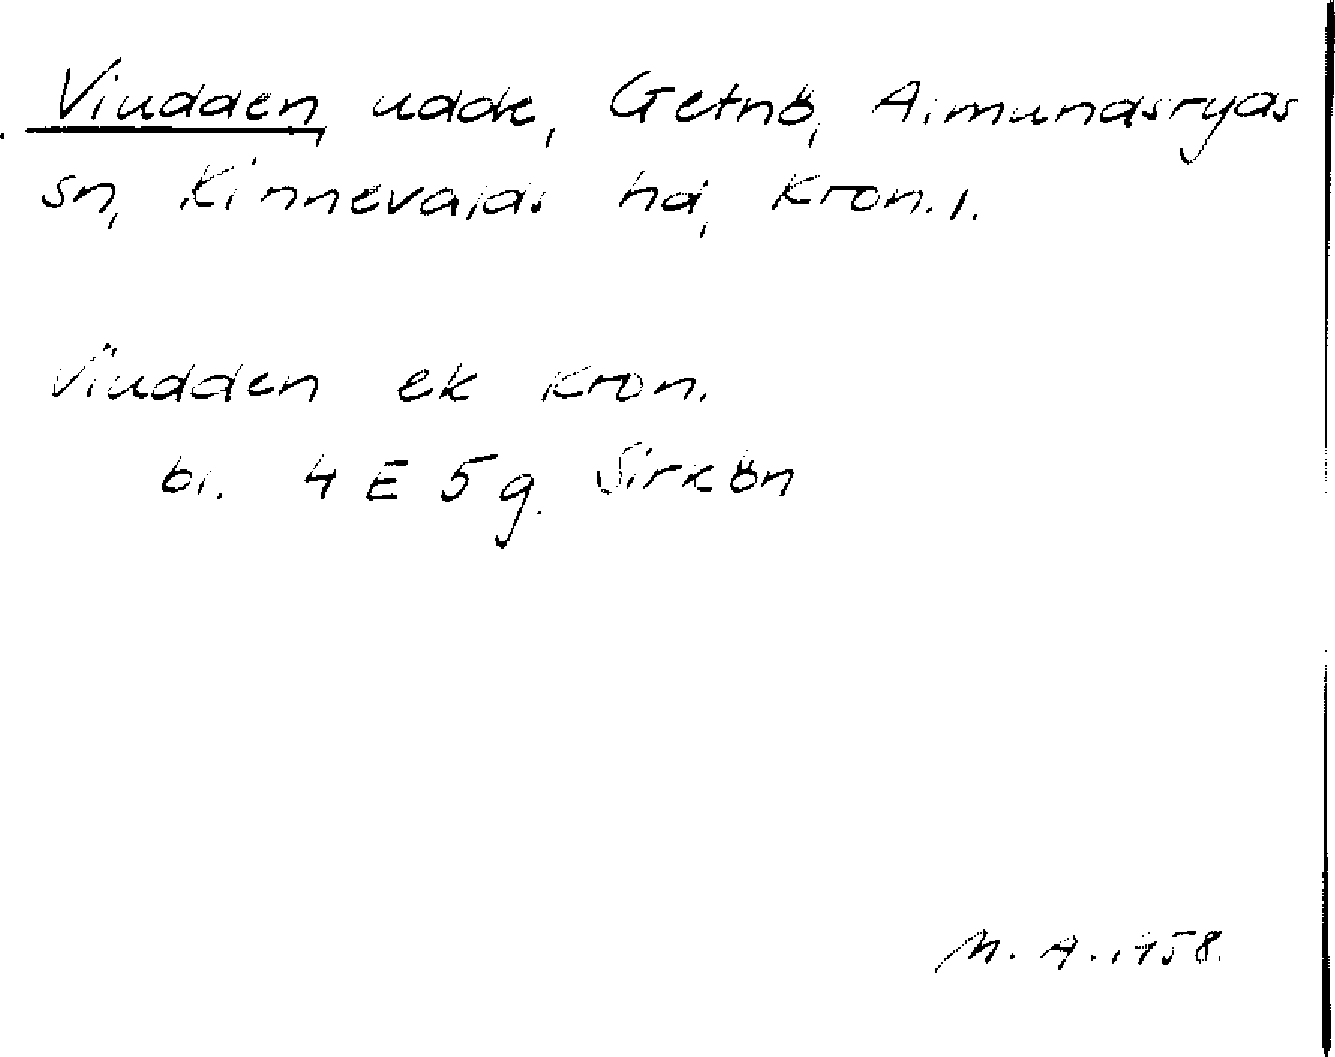 Viudden, udde, Getnö, Almundsryds
sn, Kinnevalds hd, Kron. l.
Viudden ek kron.
bl. 4 E 5 g. Sirkön
M. A. 1958.